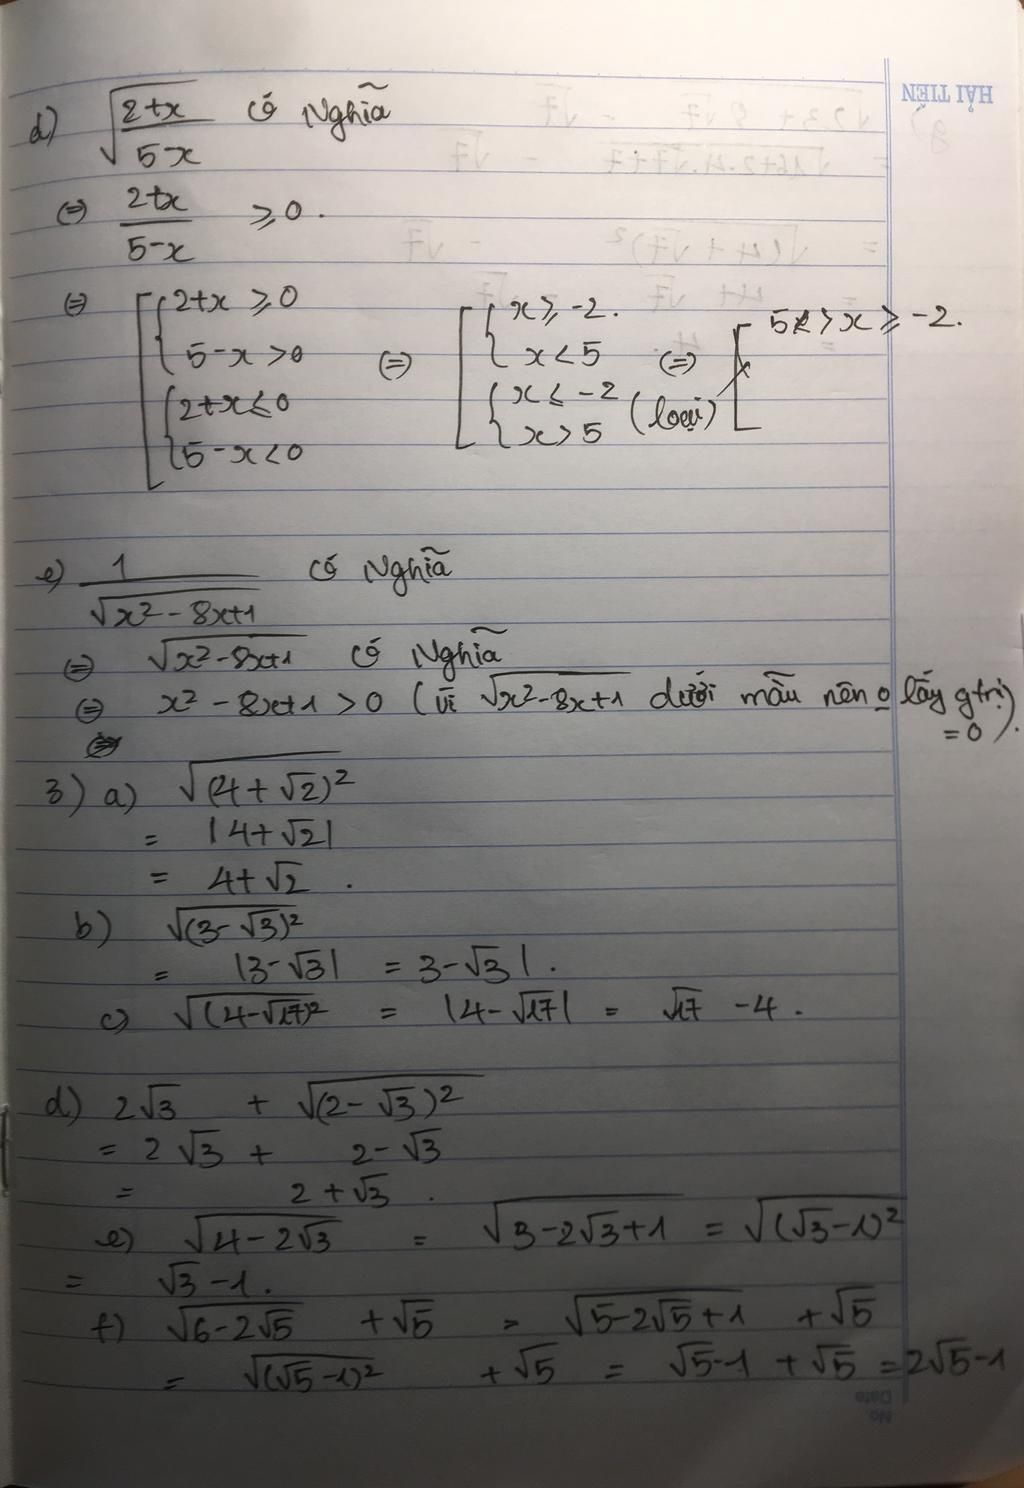 HẢI TIẾN
d) √((2+x)/(5-x)) có Nghĩa
⇔ (2+x)/(5-x) ⩾ 0.
⇔ [ { 2+x ⩾ 0 ⇔ [ { x ⩾ -2. ⇔ [ 5 > x ⩾ -2.
{ 5-x > 0 { x < 5
{ 2+x ⩽ 0 { x ⩽ -2 (loại)
{ 5-x < 0 { x > 5
e) 1/√(x²-8x+1) có Nghĩa
⇔ √(x²-8x+1) có Nghĩa
⇔ x²-8x+1 > 0 (vì √(x²-8x+1) dưới mẫu nên o lấy gtrị
= 0).
3) a) √((4+√2)²)
= |4+√2|
= 4+√2 .
b) √((3-√3)²)
= |3-√3| = 3-√3| .
c) √((4-√17)²) = |4-√17| = √17 -4 .
d) 2√3 + √((2-√3)²)
= 2√3 + 2-√3
= 2+√3 .
e) √(4-2√3) = √(3-2√3+1) = √((√3-1)²)
= √3-1.
f) √(6-2√5) +√5 = √(5-2√5+1) +√5
= √((√5-1)²) +√5 = √5-1 +√5 =2√5-1
Date
No